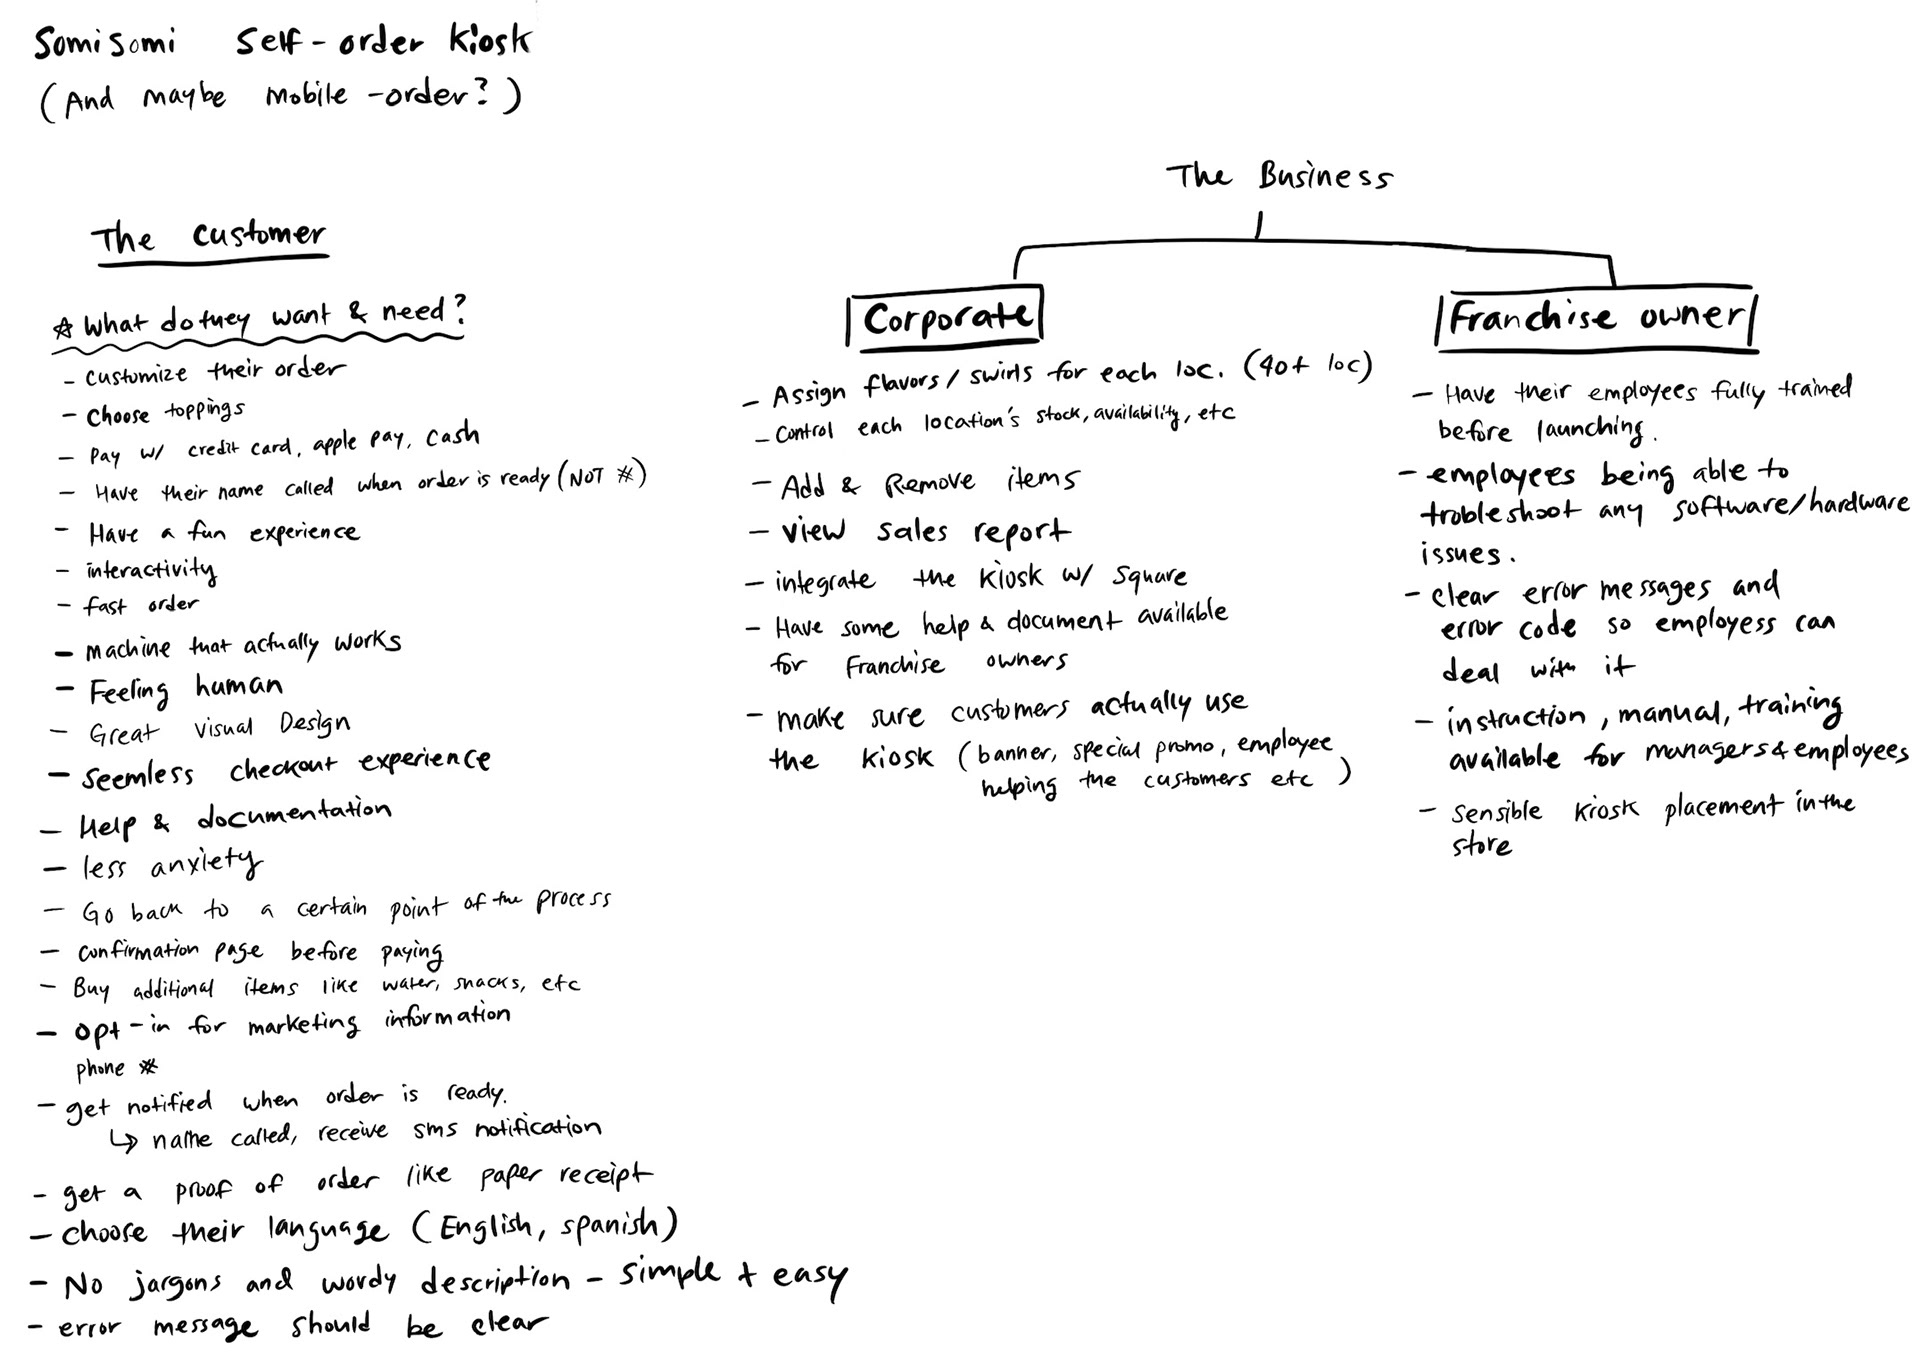 SomiSomi Self-order Kiosk
(And maybe mobile-order?)
The customer
☆ What do they want & need?
- customize their order
- choose toppings
- Pay w/ credit card, apple pay, cash
- Have their name called when order is ready (NOT #)
- Have a fun experience
- interactivity
- fast order
- machine that actually works
- Feeling human
- Great visual Design
- seemless checkout experience
- Help & documentation
- less anxiety
- Go back to a certain point of the process
- confirmation page before paying
- Buy additional items like water, snacks, etc
- opt-in for marketing information
phone #
- get notified when order is ready.
↳ name called, receive sms notification
- get a proof of order like paper receipt
- choose their language (English, spanish)
- No jargons and wordy description - simple + easy
- error message should be clear
The Business
Corporate
- Assign flavors/swirls for each loc. (40+ loc)
- Control each location's stock, availability, etc
- Add & Remove items
- view sales report
- integrate the kiosk w/ Square
- Have some help & document available
for Franchise owners
- make sure customers actually use
the kiosk (banner, special promo, employee
helping the customers etc)
Franchise owner
- Have their employees fully trained
before launching.
- employees being able to
trobleshoot any software/hardware
issues.
- clear error messages and
error code so employess can
deal with it
- instruction, manual, training
available for managers & employees
- sensible kiosk placement in the
store